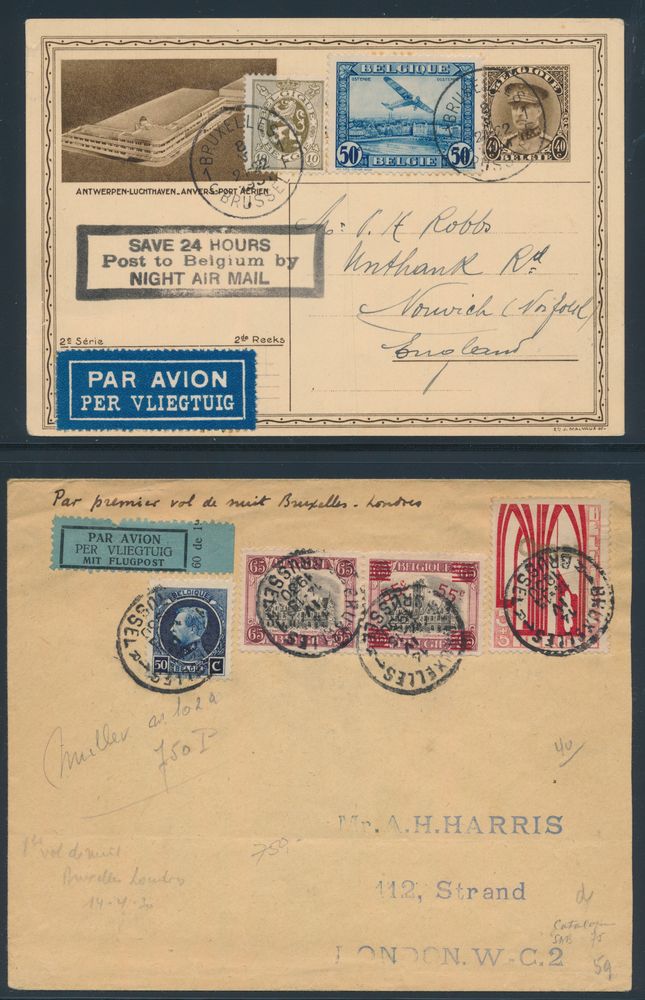 BELGIQUE
OSTENDE OOSTENDE
50c 50c
BELGIE
10
BELGIQUE
40 40
BELGIE
BRUXELLES
BRUSSEL
ANTWERPEN-LUCHTHAVEN_ANVERS-PORT AERIEN
SAVE 24 HOURS
Post to Belgium by
NIGHT AIR MAIL
Robbs
Unthank Rd
Norwich (Norfolk)
England
2e Série 2de Reeks
PAR AVION
PER VLIEGTUIG
Par premier vol de nuit Bruxelles - Londres
PAR AVION
PER VLIEGTUIG
MIT FLUGPOST
BELGIQUE
50 C
65 65
BELGIQUE
55c
BRUXELLES
BRUSSEL
1930
Muller
750
1er vol de nuit
Bruxelles Londres
14-4-30
750-
Mr. A.H.HARRIS
112, Strand
LONDON.W-C.2
Catalogue
59